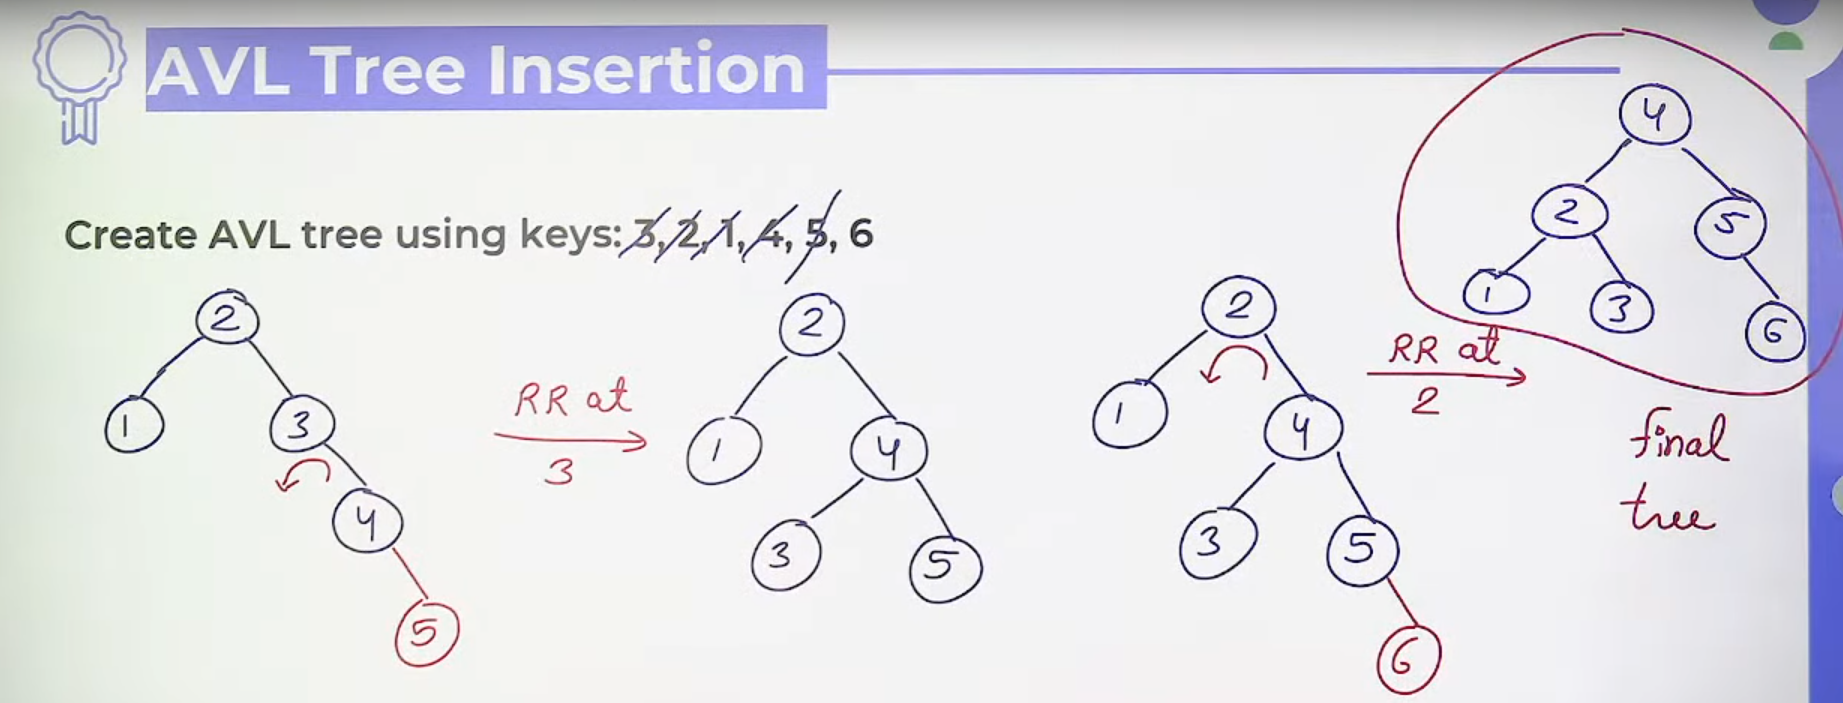 AVL Tree Insertion
Create AVL tree using keys: 3, 2, 1, 4, 5, 6
2
1
3
4
5
RR at
3
2
1
4
3
5
2
1
4
3
5
6
RR at
2
4
2
5
1
3
6
final
tree